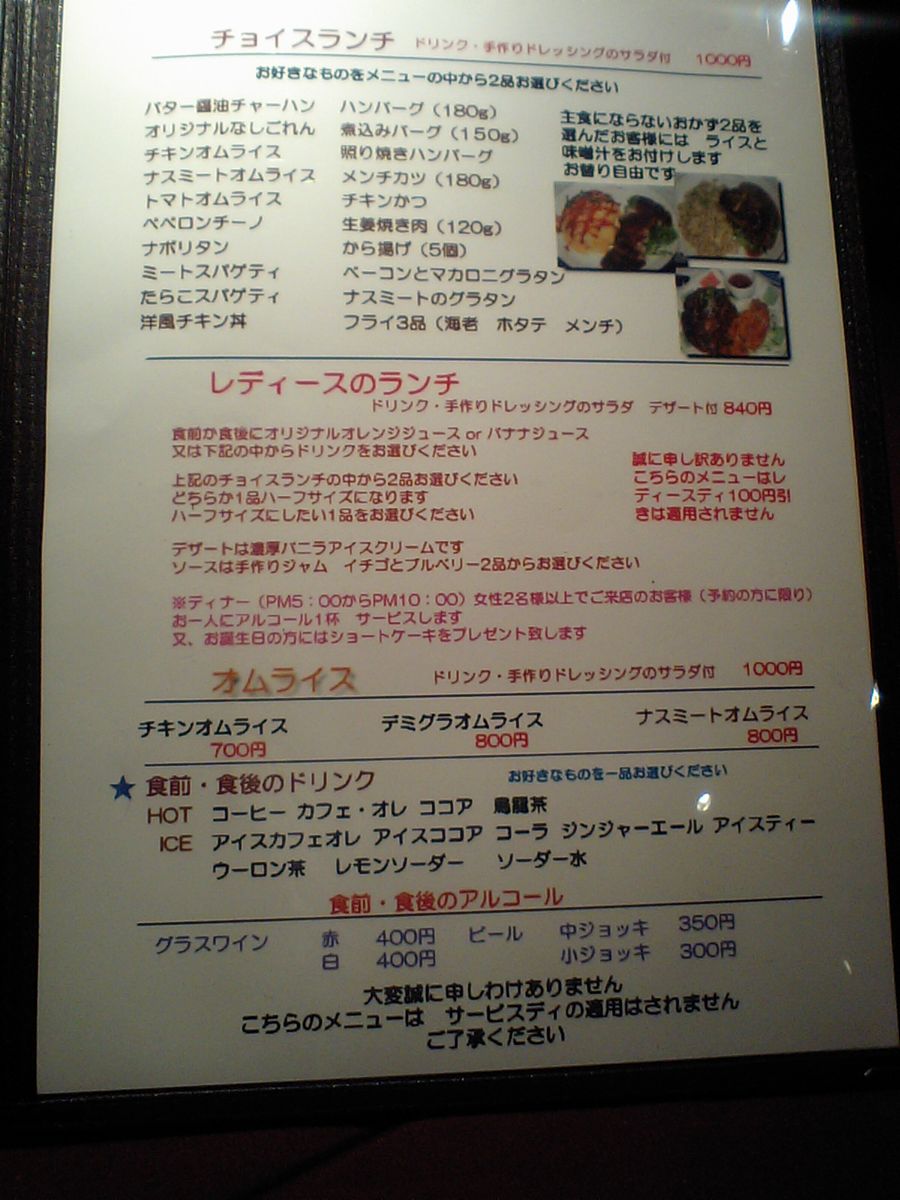 チョイスランチ ドリンク・手作りドレッシングのサラダ付 1000円
お好きなものをメニューの中から2品お選びください
バター醤油チャーハン ハンバーグ（180g）
オリジナルなしごれん 煮込みバーグ（150g）
チキンオムライス 照り焼きハンバーグ
ナスミートオムライス メンチカツ（180g）
トマトオムライス チキンかつ
ペペロンチーノ 生姜焼き肉（120g）
ナポリタン から揚げ（5個）
ミートスパゲティ ベーコンとマカロニグラタン
たらこスパゲティ ナスミートのグラタン
洋風チキン丼 フライ3品（海老 ホタテ メンチ）
主食にならないおかず2品を
選んだお客様には ライスと
味噌汁をお付けします
お替り自由です
レディースのランチ
ドリンク・手作りドレッシングのサラダ デザート付 840円
食前か食後にオリジナルオレンジジュース or バナナジュース
又は下記の中からドリンクをお選びください
上記のチョイスランチの中から2品お選びください
どちらか1品ハーフサイズになります
ハーフサイズにしたい1品をお選びください
誠に申し訳ありません
こちらのメニューはレ
ディースディ100円引
きは適用されません
デザートは濃厚バニラアイスクリームです
ソースは手作りジャム イチゴとブルベリー2品からお選びください
※ディナー（PM5：00からPM10：00）女性2名様以上でご来店のお客様（予約の方に限り）
お一人にアルコール1杯 サービスします
又、お誕生日の方にはショートケーキをプレゼント致します
オムライス ドリンク・手作りドレッシングのサラダ付 1000円
チキンオムライス デミグラオムライス ナスミートオムライス
700円 800円 800円
★ 食前・食後のドリンク お好きなものを一品お選びください
HOT コーヒー カフェ・オレ ココア 烏龍茶
ICE アイスカフェオレ アイスココア コーラ ジンジャーエール アイスティー
ウーロン茶 レモンソーダー ソーダー水
食前・食後のアルコール
グラスワイン 赤 400円 ビール 中ジョッキ 350円
白 400円 小ジョッキ 300円
大変誠に申しわけありません
こちらのメニューは サービスディの適用はされません
ご了承ください